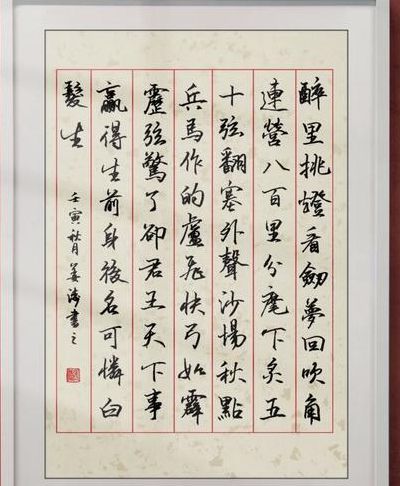 醉里挑燈看劍夢回吹角
連營八百里分麾下炙五
十弦翻塞外聲沙場秋點
兵馬作的盧飛快弓如霹
靂弦驚了卻君王天下事
贏得生前身後名可憐白
髮生
壬寅秋月姜濤書之